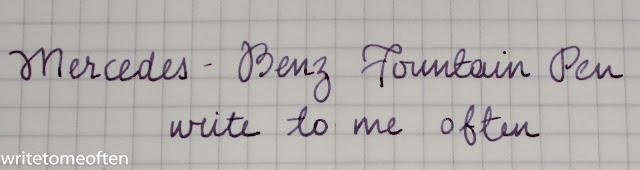 Mercedes - Benz Fountain Pen
write to me often
writetomeoften